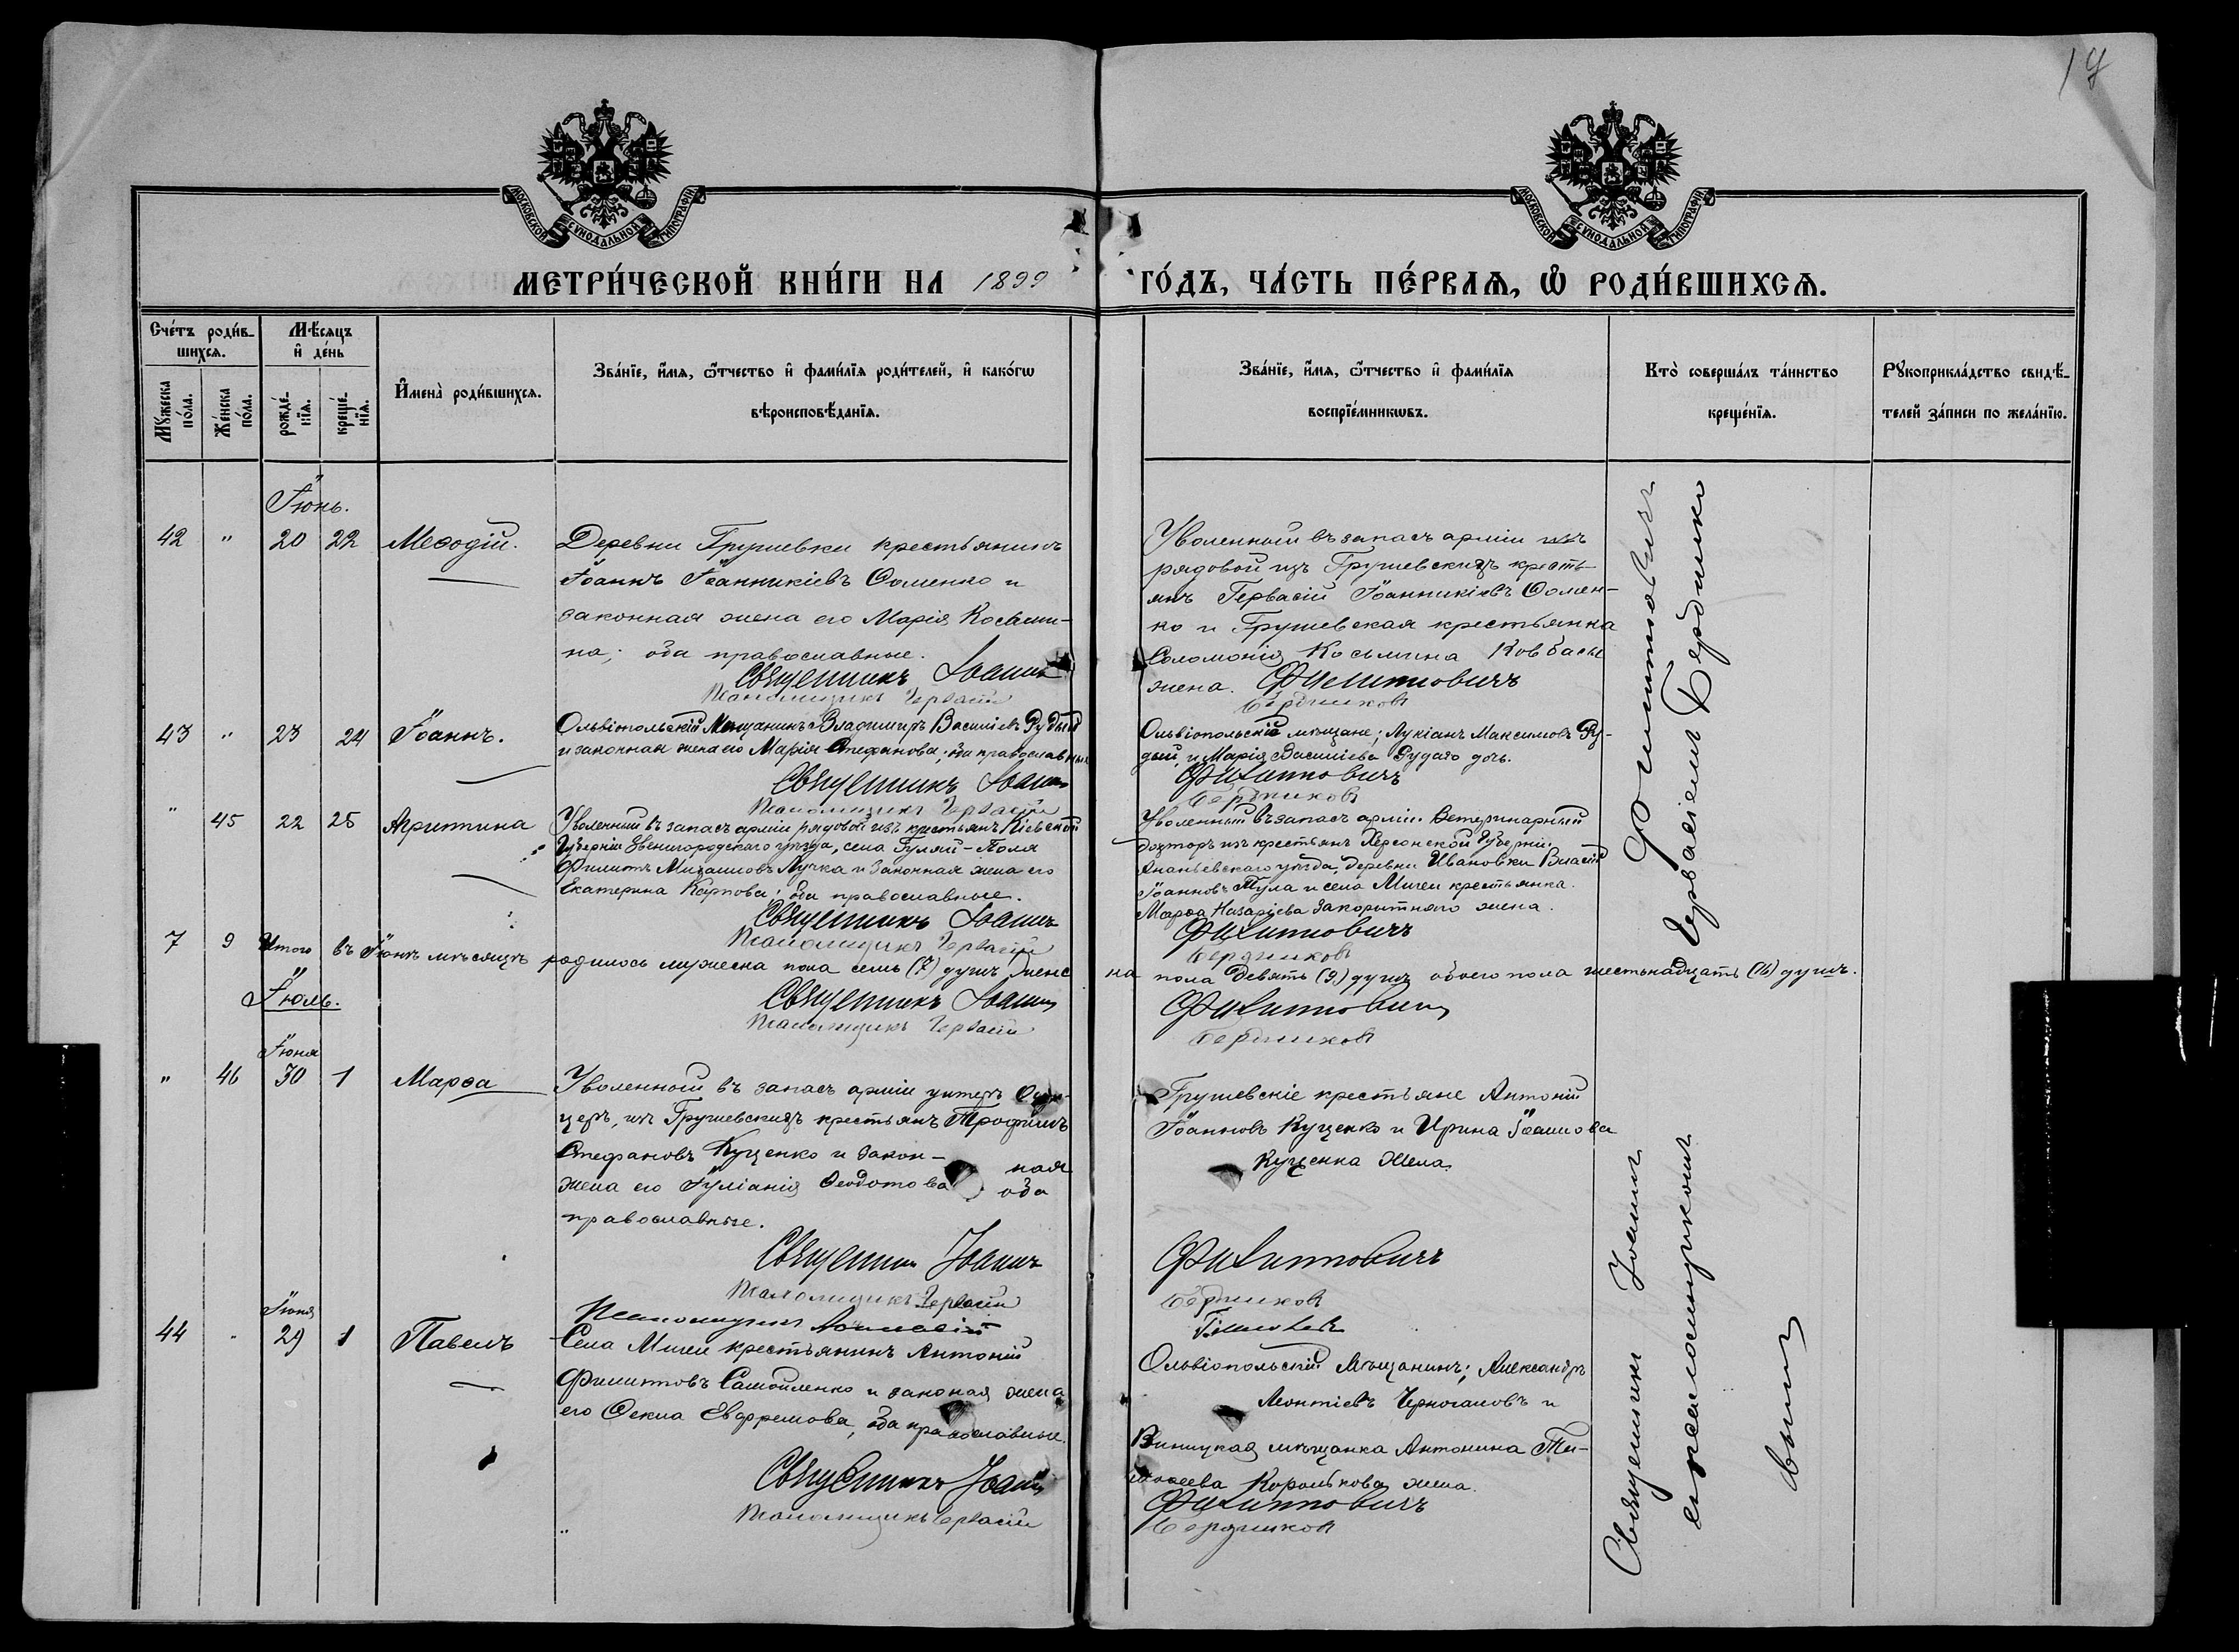 17
МОСКОВСКОЙ СѴНОДАЛЬНОЙ ТИПОГРАФІИ
МОСКОВСКОЙ СѴНОДАЛЬНОЙ ТИПОГРАФІИ
МЕТРИ́ЧЕСКОЙ КНИ́ГИ НА 1899 ГО́ДЪ, ЧА́СТЬ ПЕ́РВАѦ, Ѡ РОДИ́ВШИХСѦ.
Сче́тъ роди́в-
шихсѧ.
Мꙋжеска по́ла.
Же́нска по́ла.
Мѣ́сѧцъ
и҆ де́нь
рожде́-
нїѧ.
креще́-
нїѧ.
И҆мена̀ роди́вшихсѧ.
Зва́нїе, и҆́мѧ, ѻ҆́тчество и҆ фами́лїѧ роди́телей, и҆ како́гѡ
вѣроисповѣ́данїѧ.
Зва́нїе, и҆́мѧ, ѻ҆́тчество и҆ фами́лїѧ
воспрїе́мникѡвъ.
Кто̀ соверша́лъ та́инство
креще́нїѧ.
Рꙋкоприкла́дство свидѣ́-
телей за́писи по жела́нїю.
Іюнь.
42 " 20 22 Меѳодій.
Деревни Грушевки крестьянинъ
Іоаннъ Іоанникіевъ Ѳоменко и
законная жена его Марія Косьми-
на; оба православные.
Священникъ Іоаннъ
Псаломщикъ Герваси
Уволенный въ запасъ арміи
рядовой изъ Грушевскихъ кресть-
янъ Гервасій Іоанникіевъ Ѳомен-
ко и Грушевская крестьянка
Соломонія Косьмина Ковбасы
жена. Филипповичъ
Бердников
43 " 23 24 Іоаннъ.
Ольвіопольскій Мещанинъ Владиміръ Василіевъ Рудый
и законная жена его Марія Стефанова; оба православные
Священникъ Іоаннъ
Псаломщикъ Герваси
Ольвіопольскіе мѣщане; Лукіанъ Максимовъ Ру-
дый, и Марія Василіева Рудаго дочь.
Филипповичъ
Бердников
" 45 22 25 Агриппина
Уволенный въ запасъ арміи рядовой изъ крестьянъ Кіевской
Губерніи Звенигородскаго уѣзда, села Гуляй-Поля
Филиппъ Михаиловъ Лучка и Законная жена его
Екатерина Карпова; оба православные.
Священникъ Іоаннъ
Псаломщикъ Герваси
Уволенный въ запасъ арміи Ветеринарный
докторъ изъ крестьянъ Херсонской Губерніи
Ананьевскаго уѣзда, деревни Ивановки Власій
Іоанновъ Тула и села Мигеи крестьянка
Марѳа Назаріева Закоритняго жена.
Филипповичъ
Бердников
7 9 Итого въ Іюнѣ мѣсяцѣ родилось мужеска пола семь (7) душъ женс
на пола девять (9) душъ обоего пола шестьнадцать (16) душъ.
Іюль.
Священникъ Іоаннъ
Псаломщикъ Герваси
Филипповичъ
Бердников
Іюня
" 46 30 1 Марѳа
Уволенный въ запасъ арміи унтеръ Офи-
церъ, изъ Грушевскихъ крестьянъ Трофимъ
Стефановъ Куценко и закон-
ная
жена его Іуліанія Ѳеодотова; оба
православные.
Священникъ Іоаннъ
Псаломщикъ Герваси
Грушевскіе крестьяне Антоній
Іоанновъ Куценко и Ирина Іоаннова
Куценка Жена.
Филипповичъ
Бердников
Псаломщикъ
Іюня
44 " 29 1 Павелъ
Села Мигеи крестьянинъ Антоній
Филипповъ Самойленко и законая жена
его Ѳекла Евфремова, оба православные.
Священникъ Іоаннъ
Псаломщикъ Герваси
Ольвіопольскій Мѣщанинъ; Александръ
Леонтіевъ Черногановъ и
Виницкая мѣщанка Антонина Ти-
моѳеева Королькова жена.
Филипповичъ
Бердников
Священникъ Іоаннъ Филипповичъ
съ псаломщикомъ Гервасіемъ Бердники
вымъ